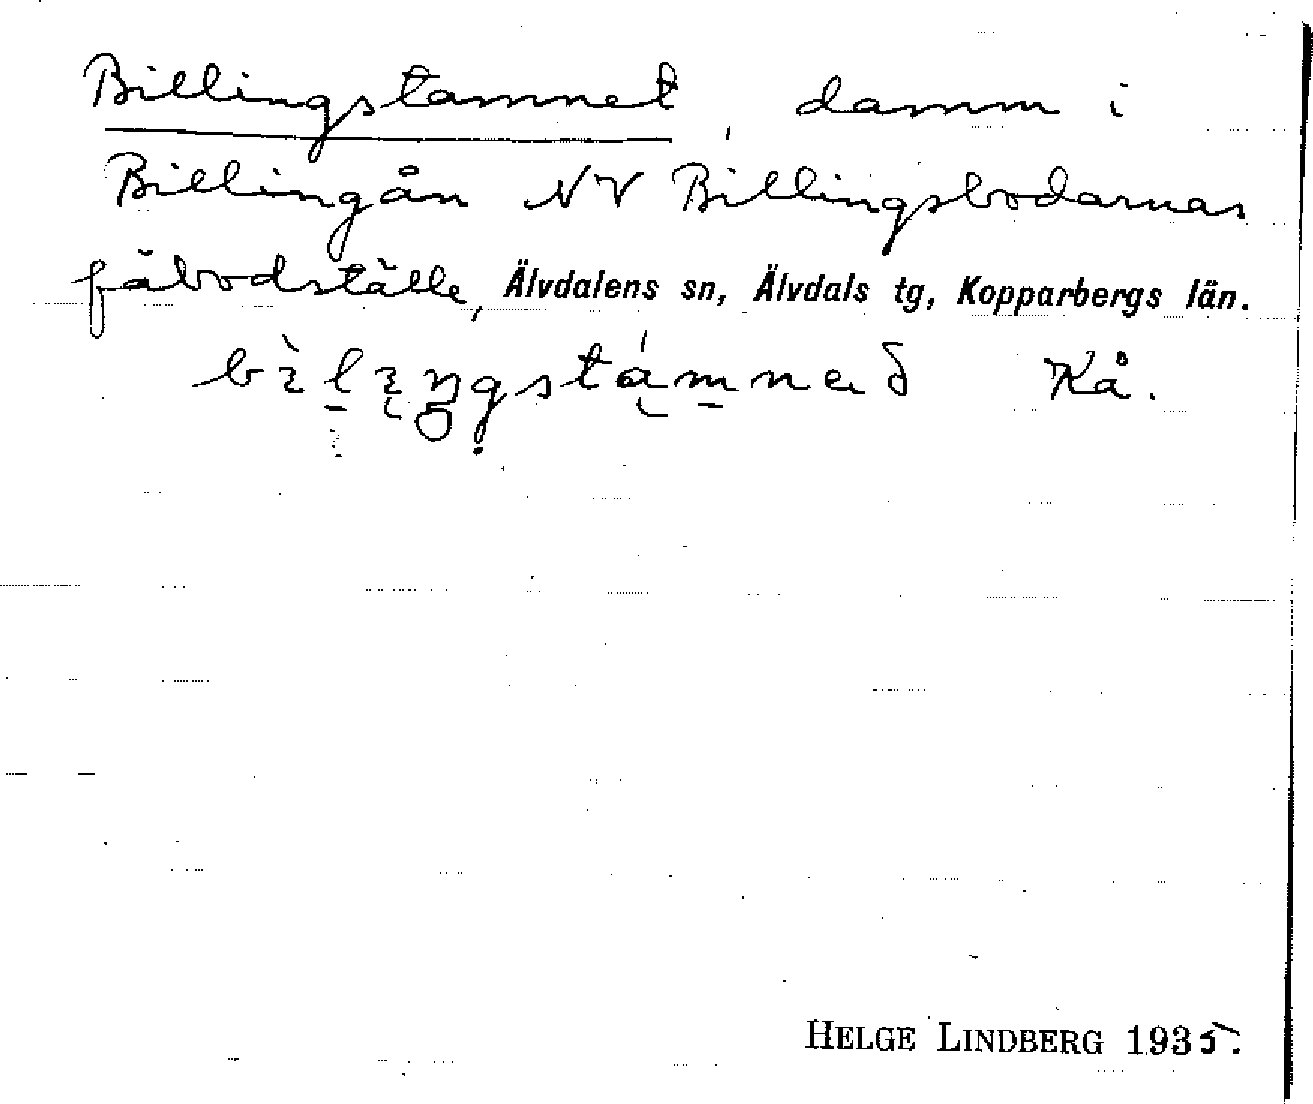 Billingstamnet, damm i
Billingån NV Billingsbodarnas
fäbodställe, Älvdalens sn, Älvdals tg, Kopparbergs län.
Kå.
HELGE LINDBERG 1935.